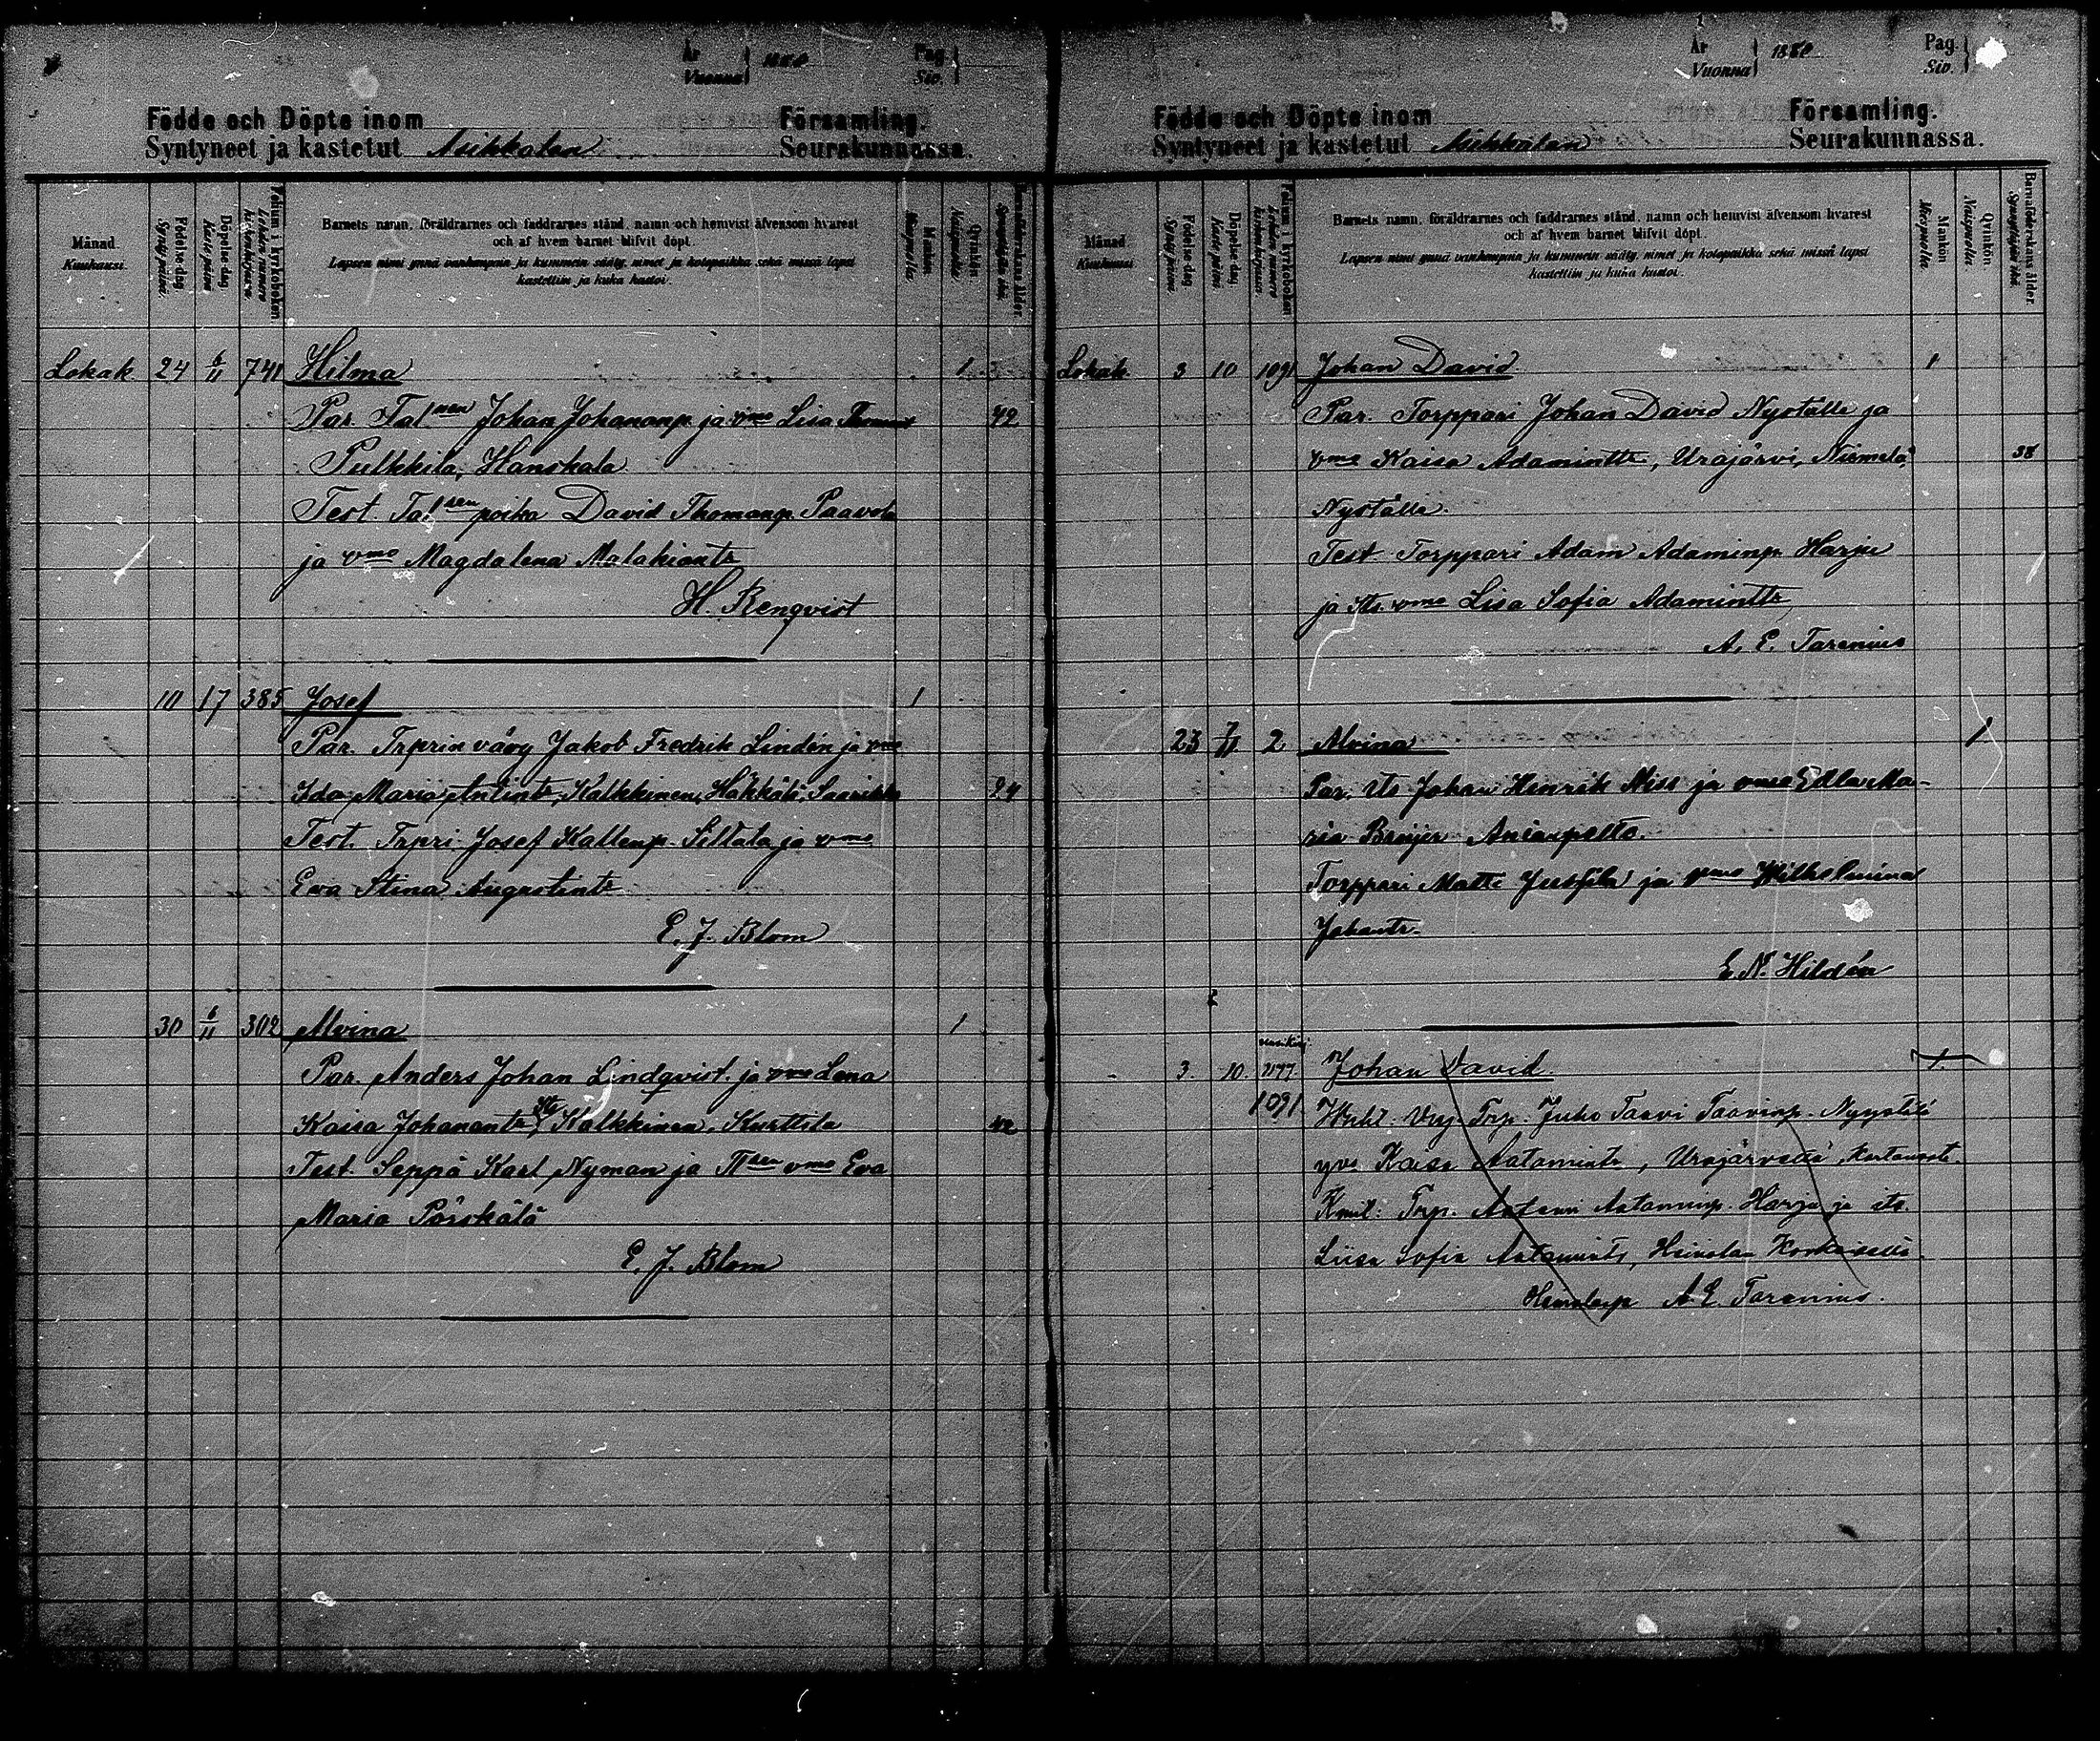 År
Vuonna 1880
Pag.
Siv.
Födde och Döpte inom
Församling.
Syntyneet ja kastetut Asikkalan Seurakunnassa.
Månad.
Kuukausi.
Födelse dag.
Synty päivä.
Döpelse dag.
Kaste päivä.
Folium i kyrkoboken.
Lehden numero kirkonkirjassa.
Barnets namn, föräldrarnes och faddrarnes stånd, namn och hemvist äfvensom hvarest
och af hvem barnet blifvit döpt.
Lapsen nimi ynnä vanhempain ja kummein sääty, nimet ja kotopaikka sekä missä lapsi
kastettiin ja kuka kastoi.
Mankön.
Miespuolia.
Qvinkön.
Naispuolia.
Barnaföderskans ålder.
Synnyttäjän ikä.
Lokak. 24 6/11 741 Hilma 1
Par. Tal nen Johan Johananp. ja vmo Lisa 42
Pulkkila, Hanskala
Test. Tal sen poika David Thomanp. Paavola
ja vmo Magdalena Malakiantr
H. Renqvist
10 17 385 Josef 1
Par. Trprin vävy Jakob Fredrik Lindén ja vmo
Ida Maria Antintr, Kalkkinen, Häkkälä, Saarikko 24
Test. Trpri Josef Kallenp. Siltala ja vmo
Eva Stina Augustintr
E. J. Blom
30 6/11 302 Alvina 1
Par. Anders Johan Lindqvist ja vmo Lena
Kaisa Johanantr, Kalkkinen, Kurttila 42
Test. Seppä Karl Nyman ja vmo Eva
Maria Pörskälä
E. J. Blom
År
Vuonna 1880
Pag.
Siv.
Födde och Döpte inom
Församling.
Syntyneet ja kastetut Asikkalan Seurakunnassa.
Månad.
Kuukausi
Födelse dag.
Synty päivä.
Döpelse dag.
Kaste päivä.
Folium i kyrkoboken
Lehden numero kirkonkirjassa.
Barnets namn, föräldrarnes och faddrarnes stånd, namn och hemvist äfvensom hvarest
och af hvem barnet blifvit döpt.
Lapsen nimi ynnä vanhempain ja kummein sääty, nimet ja kotopaikka sekä missä lapsi
kastettiin ja kuka kastoi.
Mankön
Miespuolia.
Qvinkön.
Naispuolia.
Barnaföderskans ålder.
Synnyttäjän ikä.
Lokak. 3 10 1091 Johan David 1
Par. Torppari Johan David Nyställe ja
vmo Kaisa Adamintte, Urajärvi, Niemelä, 38
Nyställe.
Test. Torppari Adam Adaminp. Harju
ja its. vmo Lisa Sofia Adamintte
A. E. Tarenius
23 7/11 2 Alvina 1
Par. Its. Johan Henrik Niss ja vmo Edla Ma-
ria Breijer Anianpelto.
Torppari Matti Jussila ja vmo Wilhelmina
Johantr.
E. N. Hildén
3. 10. Johan David 1.
1091 Trp. Juho Taavi Taavinp. Nyystölä
Kaisa Aatamintr, Urajärvellä,
Kmit: Trp. Aatami Aataminp. Harju ja its.
Liisa Sofia Aatamintr, Heinolan
A. E. Tarenius.